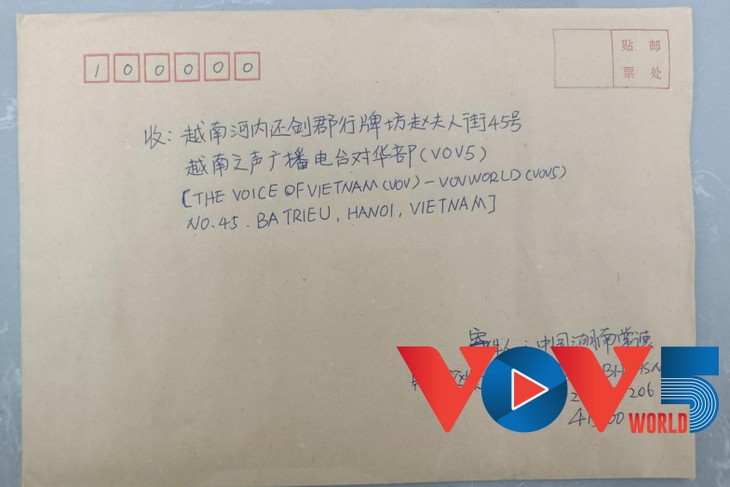 100000
贴 邮
票 处
收: 越南河内还剑郡行牌坊赵夫人街45号
越南之声广播电台对华部(VOV5)
[THE VOICE OF VIETNAM (VOV) - VOVWORLD (VOV5)
NO.45. BA TRIEU, HANOI, VIETNAM]
中国湖南常德
206
VOV5
WORLD